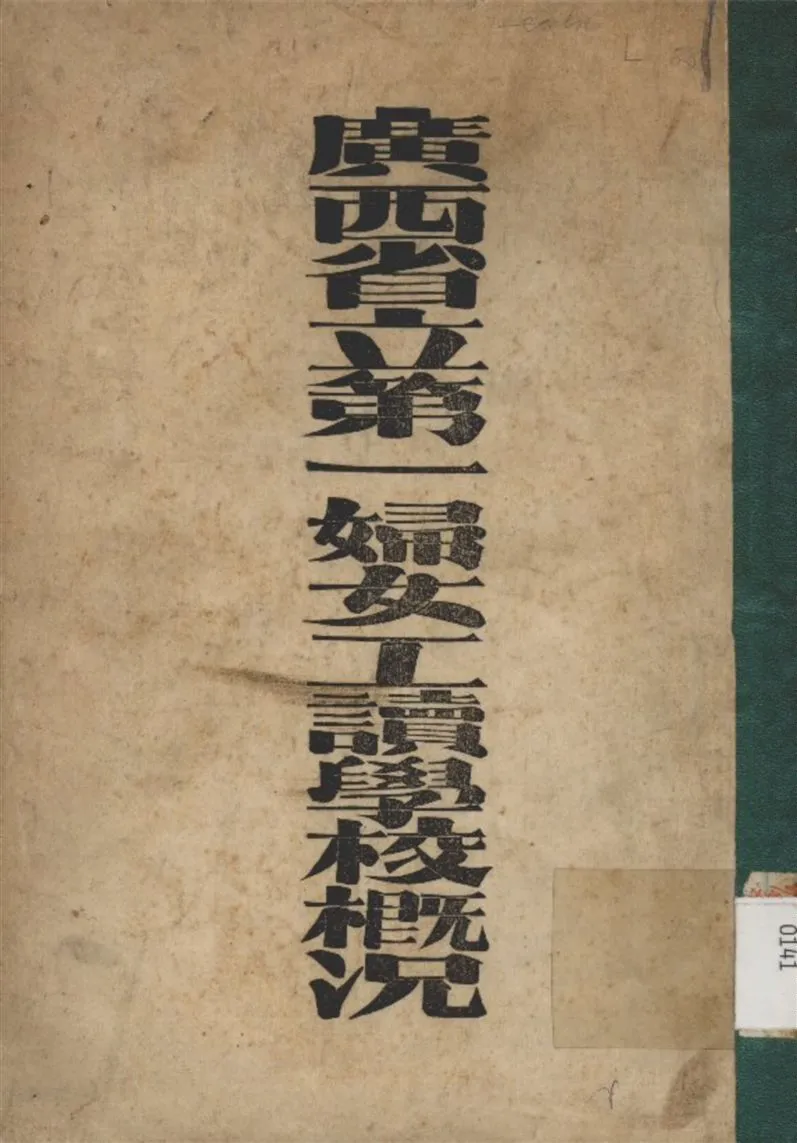 廣西省立第一婦女工讀學校概況
0141